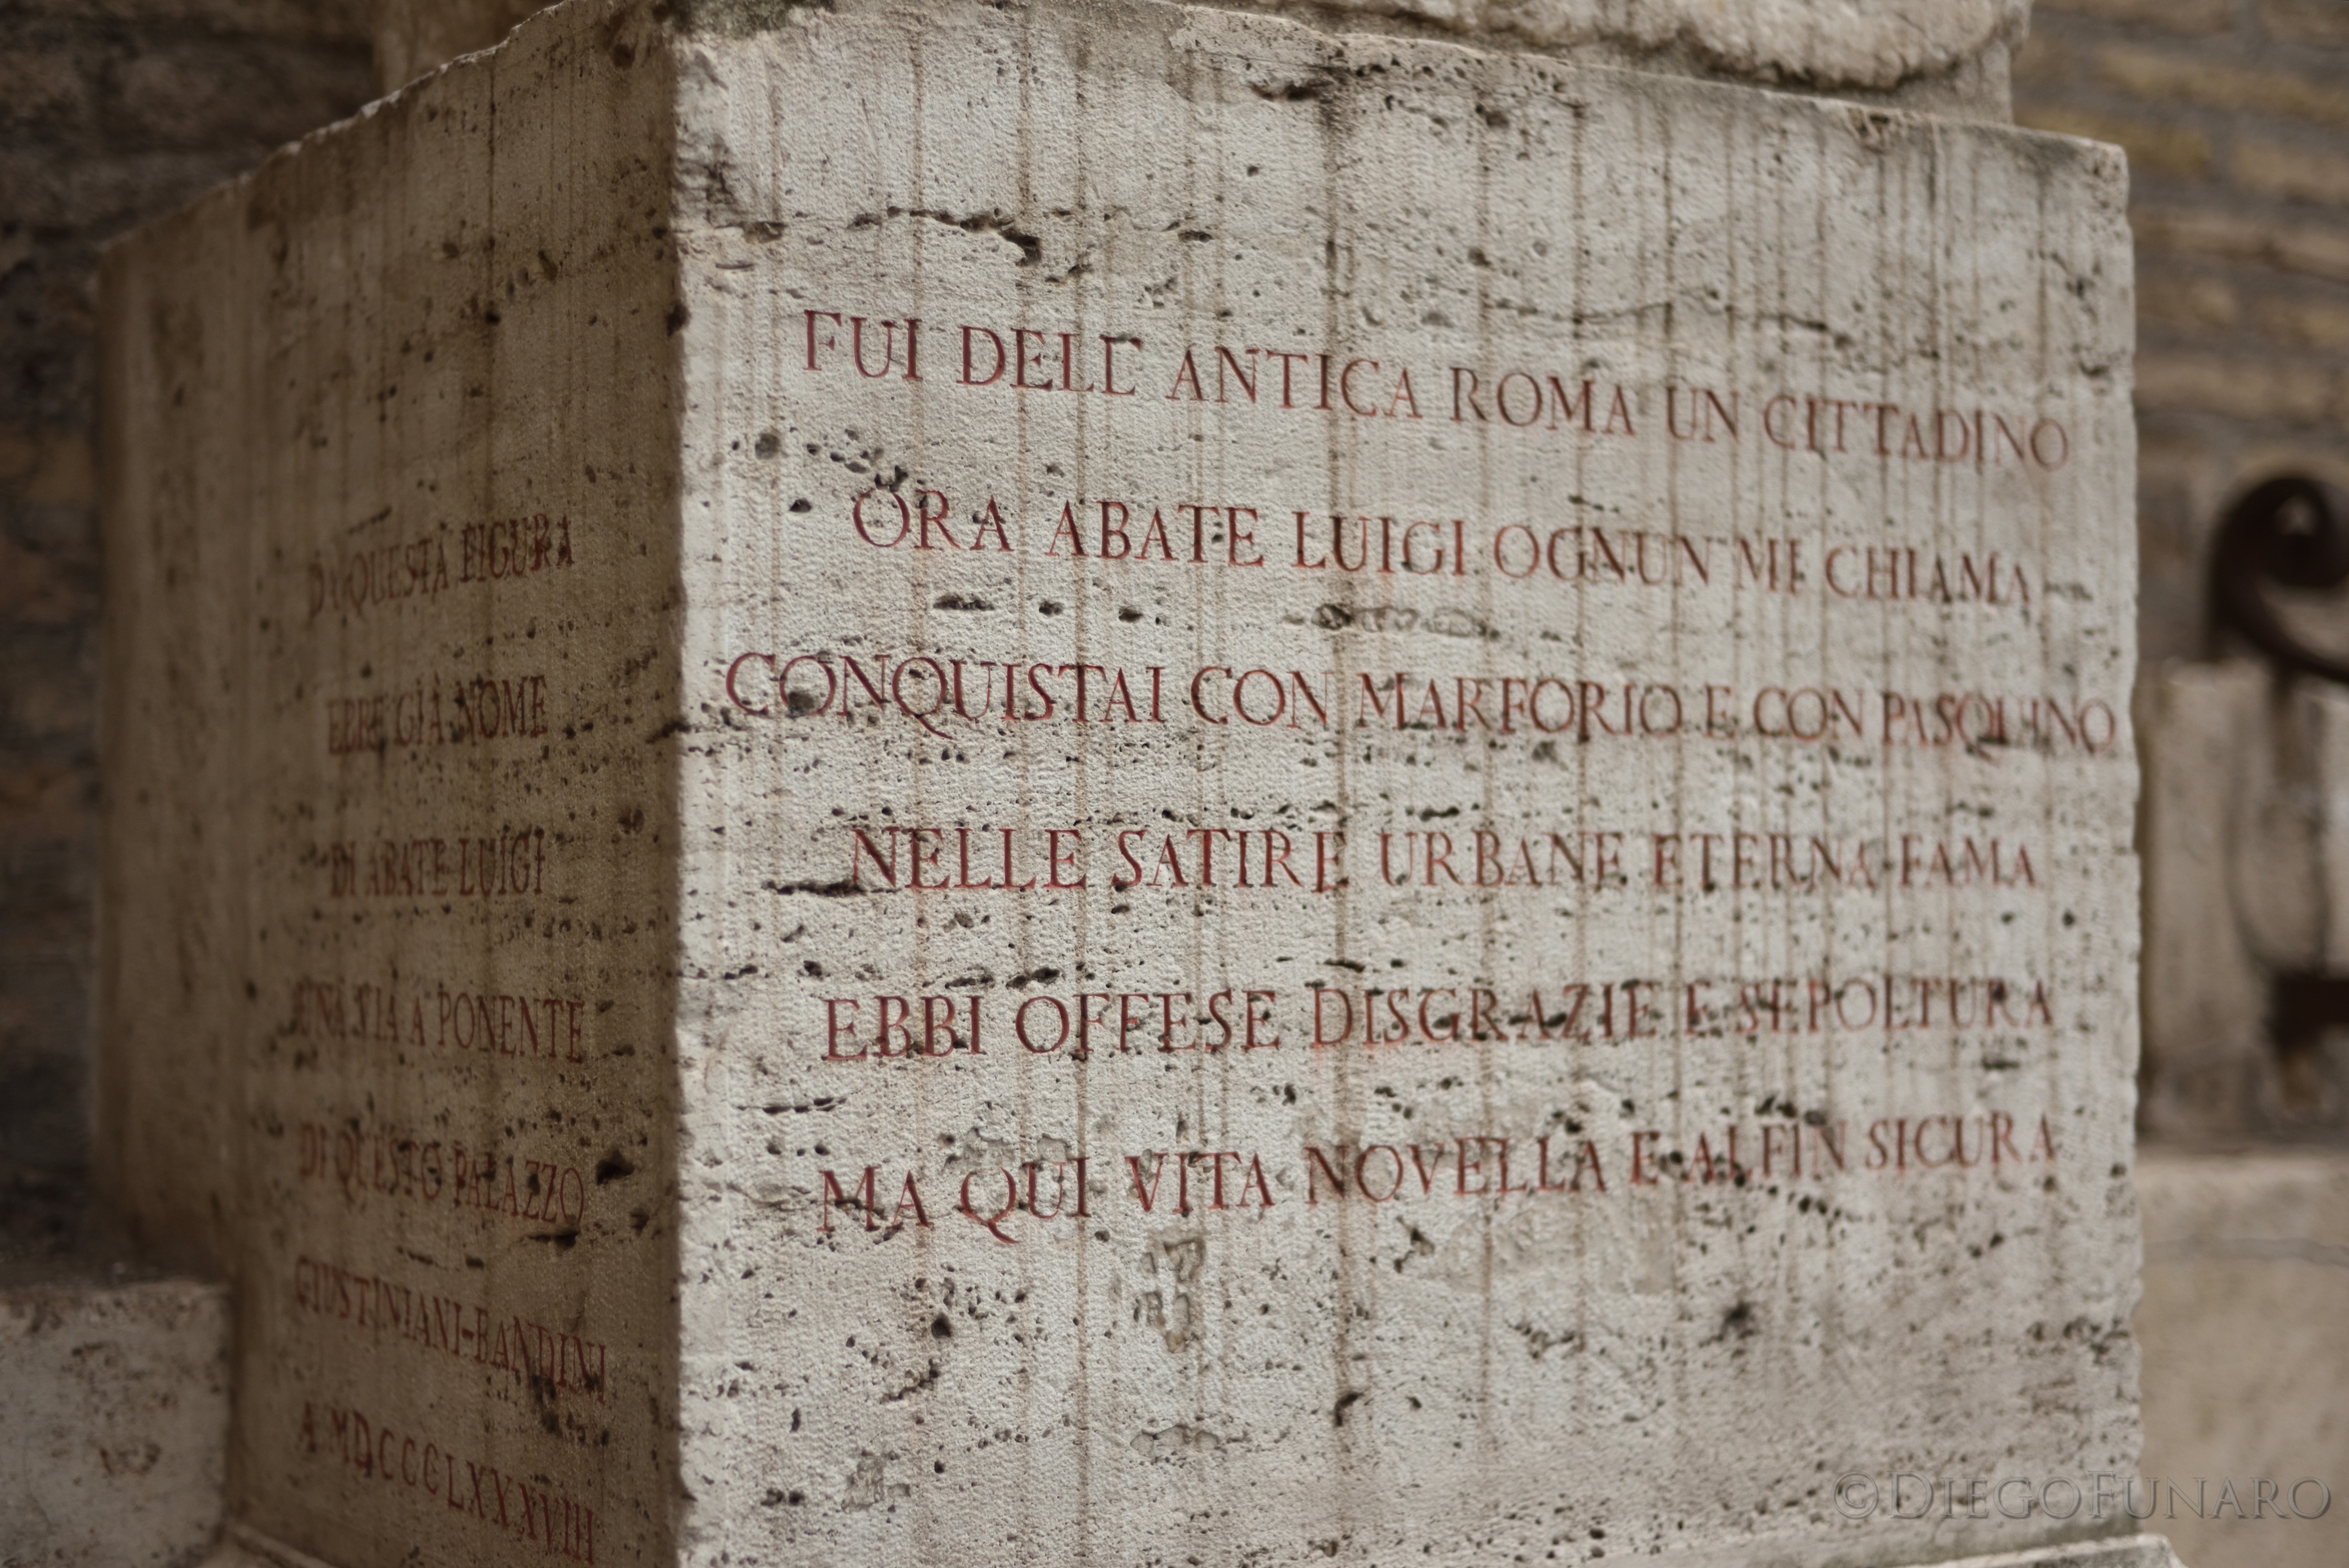 DA QUESTA FIGURA
EBBE GIÀ NOME
DI ABATE LUIGI
UNA VIA A PONENTE
DI QUESTO PALAZZO
GIUSTINIANI-BANDINI
A. MDCCCLXXXVIII
FUI DELL' ANTICA ROMA UN CITTADINO
ORA ABATE LUIGI OGNUN MI CHIAMA
CONQUISTAI CON MARFORIO E CON PASQUINO
NELLE SATIRE URBANE ETERNA FAMA
EBBI OFFESE DISGRAZIE E SEPOLTURA
MA QUI VITA NOVELLA E ALFIN SICURA
©DIEGOFUNARO